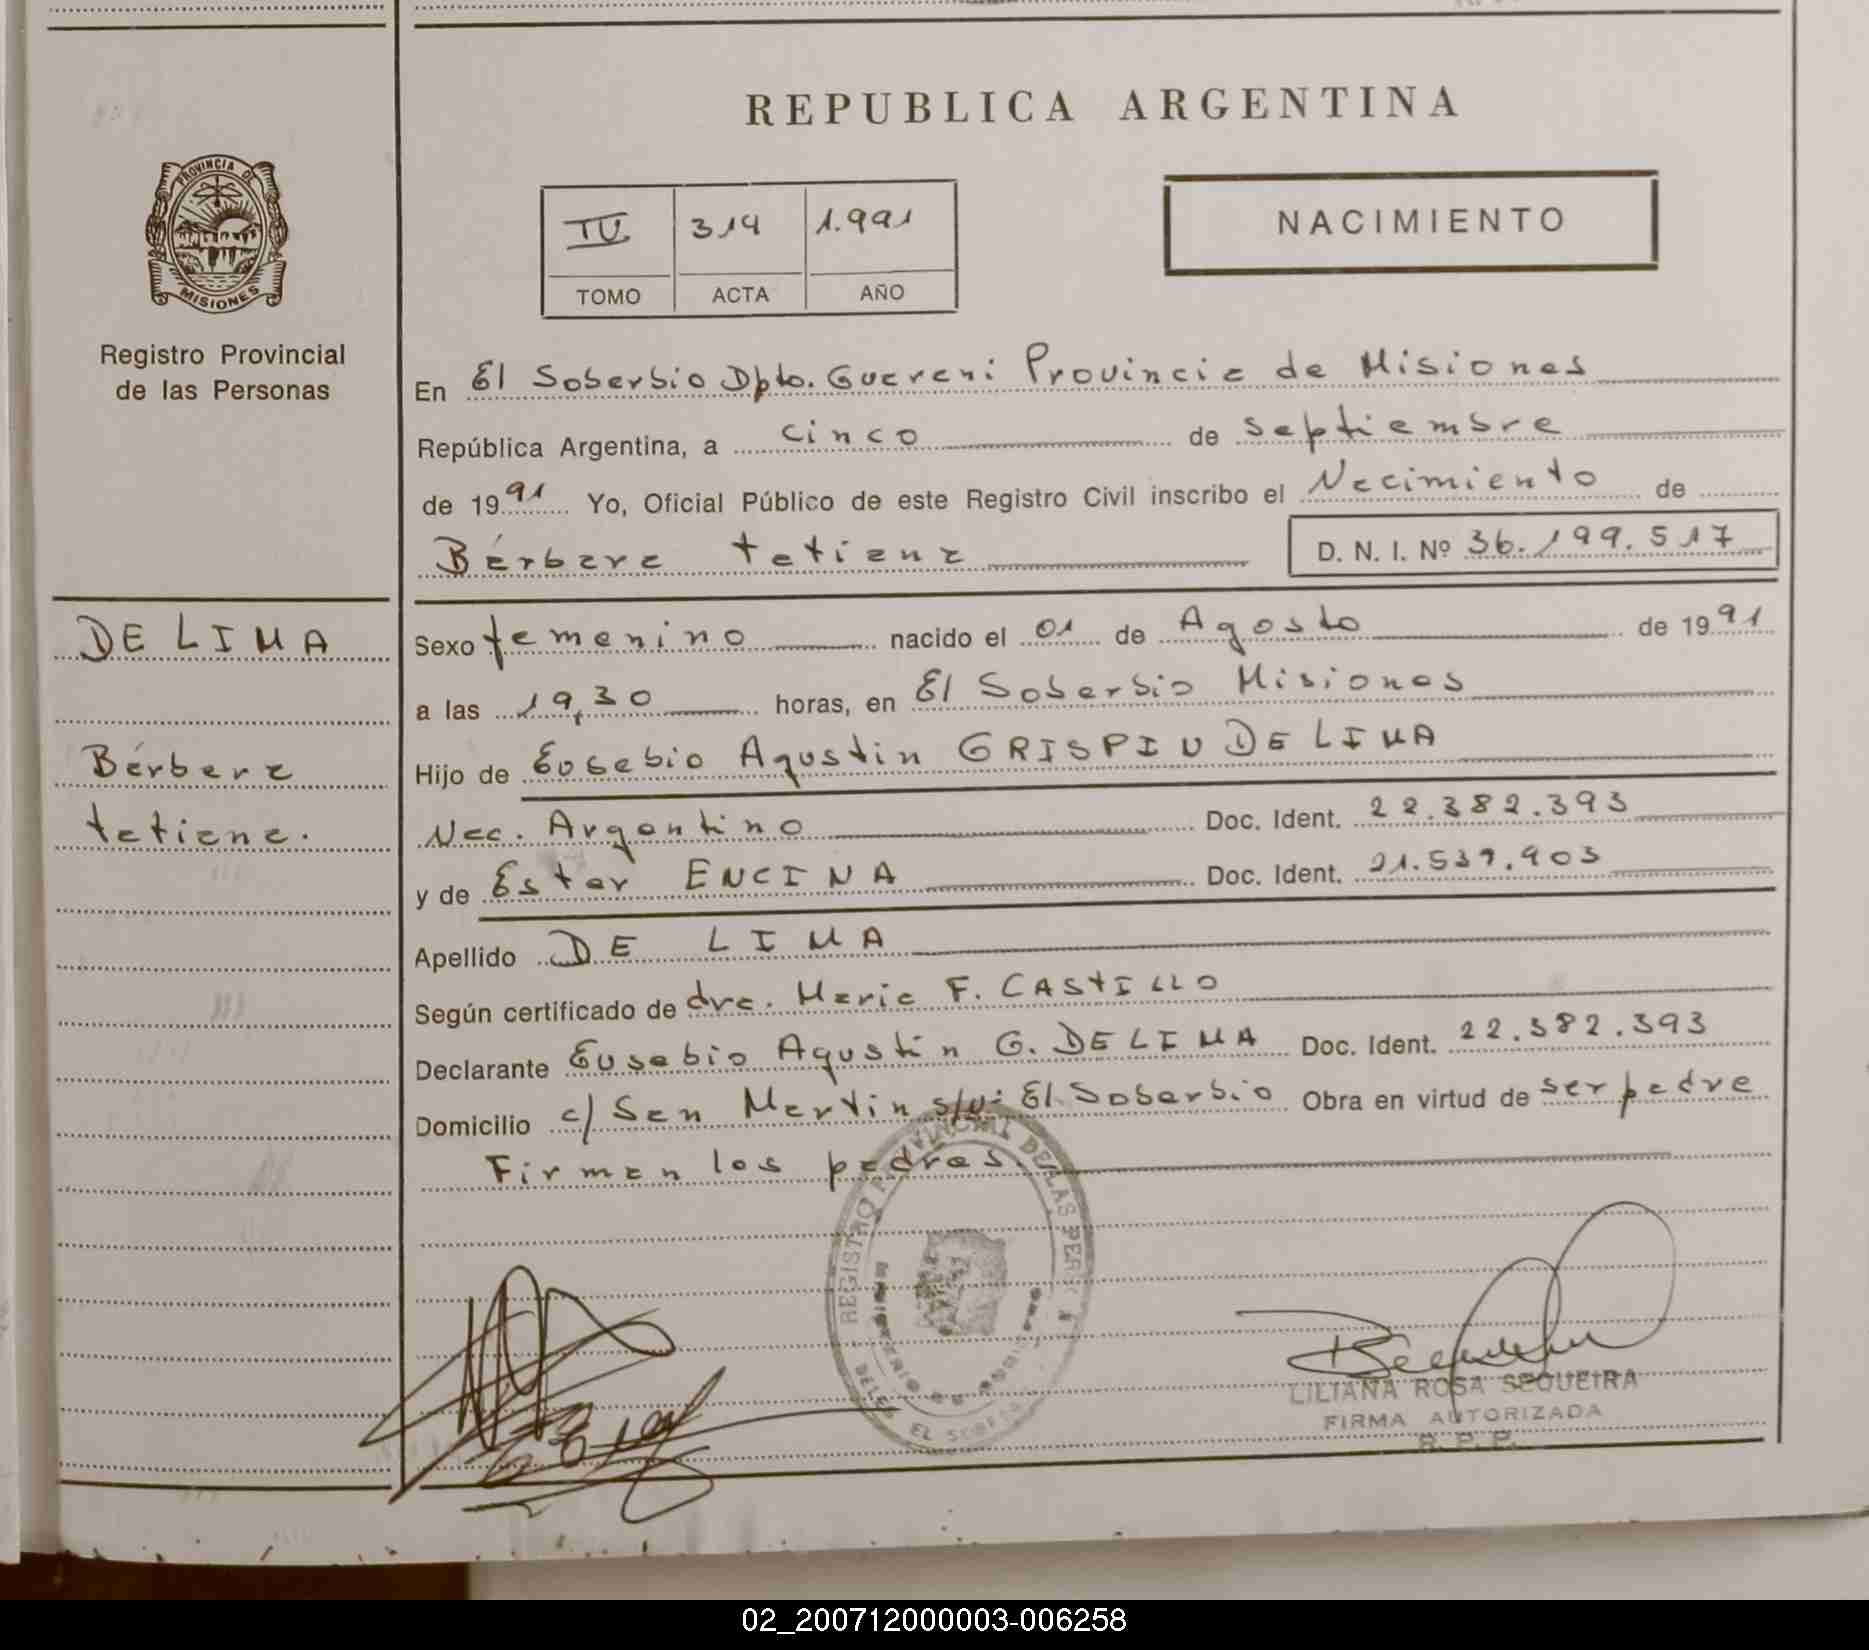 REPUBLICA ARGENTINA
PROVINCIA DE
MISIONES
Registro Provincial
de las Personas
IV 314 1.991
TOMO ACTA AÑO
NACIMIENTO
En El Soberbio Dpto. Guarani Provincia de Misiones
República Argentina, a cinco de septiembre
de 1991 Yo, Oficial Público de este Registro Civil inscribo el Nacimiento de
Bárbara tatiana D. N. I. Nº 36.199.517
DE LIMA
Bárbara
tatiana.
Sexo femenino nacido el 01 de Agosto de 1991
a las 19,30 horas, en El Soberbio Misiones
Hijo de Eusebio Agustin GRISPIN DE LIMA
Nac. Argentino Doc. Ident. 22.382.393
y de Ester ENCINA Doc. Ident. 21.539.903
Apellido DE LIMA
Según certificado de dra. Maria F. CASTILLO
Declarante Eusebio Agustin G. DE LIMA Doc. Ident. 22.382.393
Domicilio c/ San Martin s/n: El Soberbio Obra en virtud de ser padre
Firman los padres.
REGISTRO PROVINCIAL DE LAS PER
EL SOBERBIO
LILIANA ROSA SEQUEIRA
FIRMA AUTORIZADA
R. P. P.
02_200712000003-006258